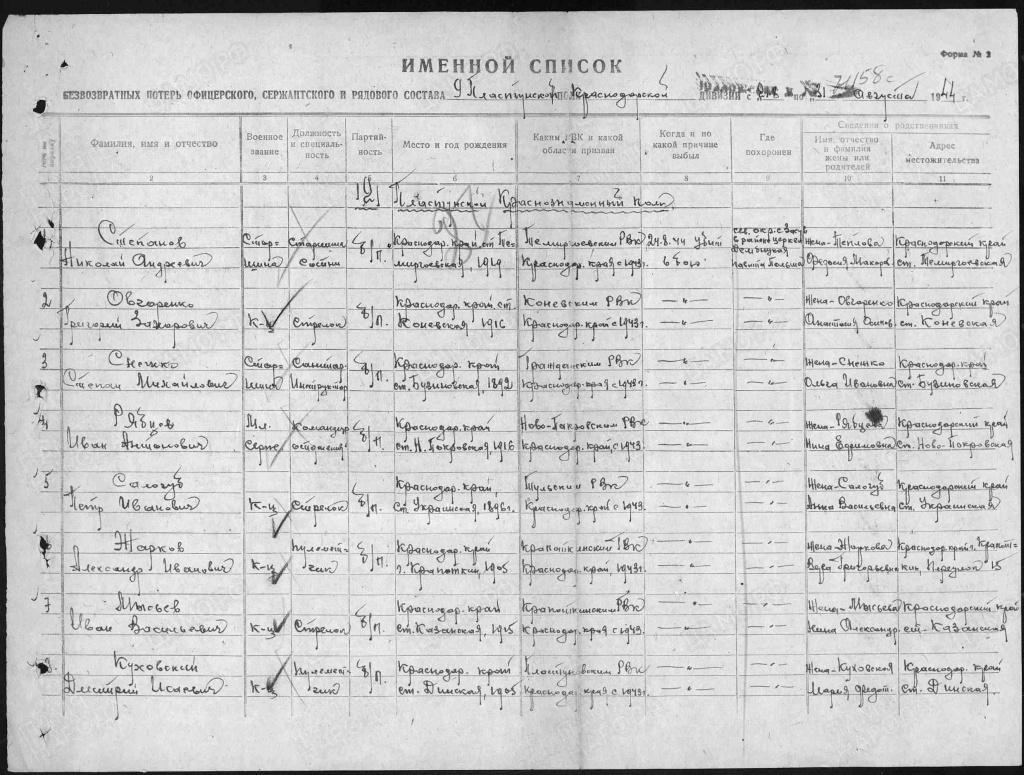 Форма № 2
ИМЕННОЙ СПИСОК
158с
БЕЗВОЗВРАТНЫХ ПОТЕРЬ ОФИЦЕРСКОГО, СЕРЖАНТСКОГО И РЯДОВОГО СОСТАВА 9 Пластунской Краснодарской ДИВИЗИИ с по 31 Августа 1944 г.
Фамилия, имя и отчество Военное звание Должность и специальность Партийность Место и год рождения Каким РВК и какой области призван Когда и по какой причине выбыл Где похоронен Сведения о родственниках
Имя, отчество и фамилия жены или родителей Адрес местожительства
2 3 4 5 6 7 8 9 10 11
Пластунской Краснознаменный полк
1 Степанов Стар- Старшина б/п. Краснодар. край, ст. Те- Темиргоевский РВК 24.8.44 убит Жена-Теплова Краснодарский край
Николай Андреевич шина Сотни миргоевская, 1919 Краснодар. края с 1943г. в бою Польша Федосия Макаров. ст. Темиргоевская
2 Овчаренко б/п. Краснодар. край, ст. Коневским РВК —"— —"— Жена-Овчаренко Краснодарский край
Григорий Захарович К-ц Стрелок Коневская 1916 Краснодар. край с 1943г. —"— —"— Анастасия Осипов. ст. Коневская
3 Снешко Стар- Санитар. б/п. Краснодар. край Гражданским РВК —"— —"— Жена-Снешко Краснодар. край
Степан Михайлович шина Инструктор ст. Бузиновская, 1892 Краснодар. края с 1943г. —"— —"— Ольга Ивановна ст. Бузиновская
4 Рябцев Мл. Командир б/п. Краснодар. край Ново-Покровским РВК —"— —"— Жена-Рябцева Краснодарский край
Иван Антонович Серж. отделения ст. Н. Покровская 1916 Краснодар. край, с 1943. —"— —"— Нина Ефимовна ст. Ново-Покровская
5 Сологуб б/п. Краснодар. край, Тульским РВК —"— —"— Жена-Сологуб Краснодарский край
Петр Иванович К-ц Стрелок ст. Украинская, 1896г. Краснодар. край с 1943. —"— —"— Анна Васильевна ст. Украинская
Жарков Пулемет- б/п. Краснодар. край Кропоткинский РВК —"— —"— Жена-Жаркова Краснодар. край г. Кропот-
Александр Иванович К-ц чик г. Кропоткин, 1905 Краснодар. край, 1943г. —"— —"— Вера Григорьевна кин, Переулок 15
7 Мысьев б/п. Краснодар. край Кропоткинским РВК —"— —"— Жена-Мысьева Краснодарский край
Иван Васильевич К-ц Стрелок ст. Казанская, 1915 Краснодар. края с 1943г. —"— —"— Нина Александр. ст. Казанская
8. Куховский Пулемет- б/п. Краснодар. край Пластуновским РВК —"— —"— Жена-Куховская Краснодар. край
Дмитрий Исаевич К-ц чик ст. Динская, 1905 Краснодар. края с 1943г. —"— —"— Мария Федот. ст. Динская.